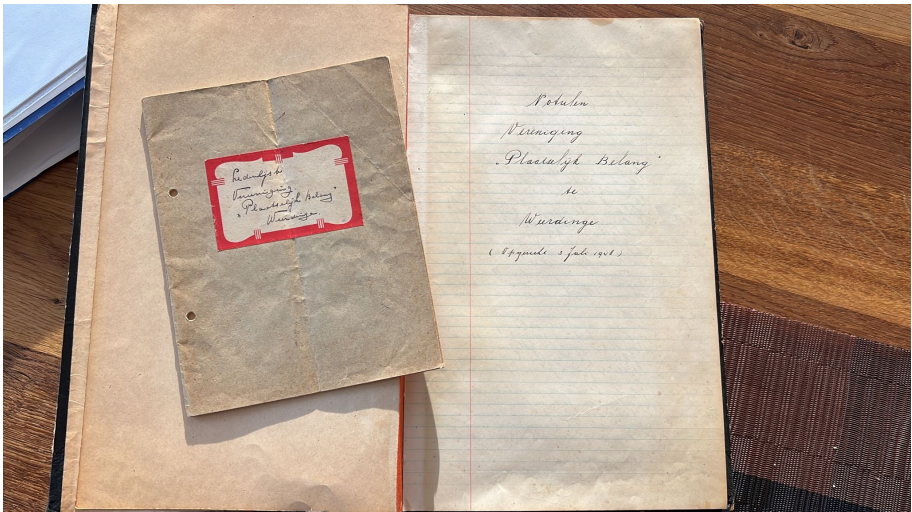 Ledenlijst
Vereeniging
„Plaatselijk Belang"
Weerdinge.
Notulen
Vereniging
„Plaatselijk Belang"
te
Weerdinge
(Opgericht 3 Juli 1948)